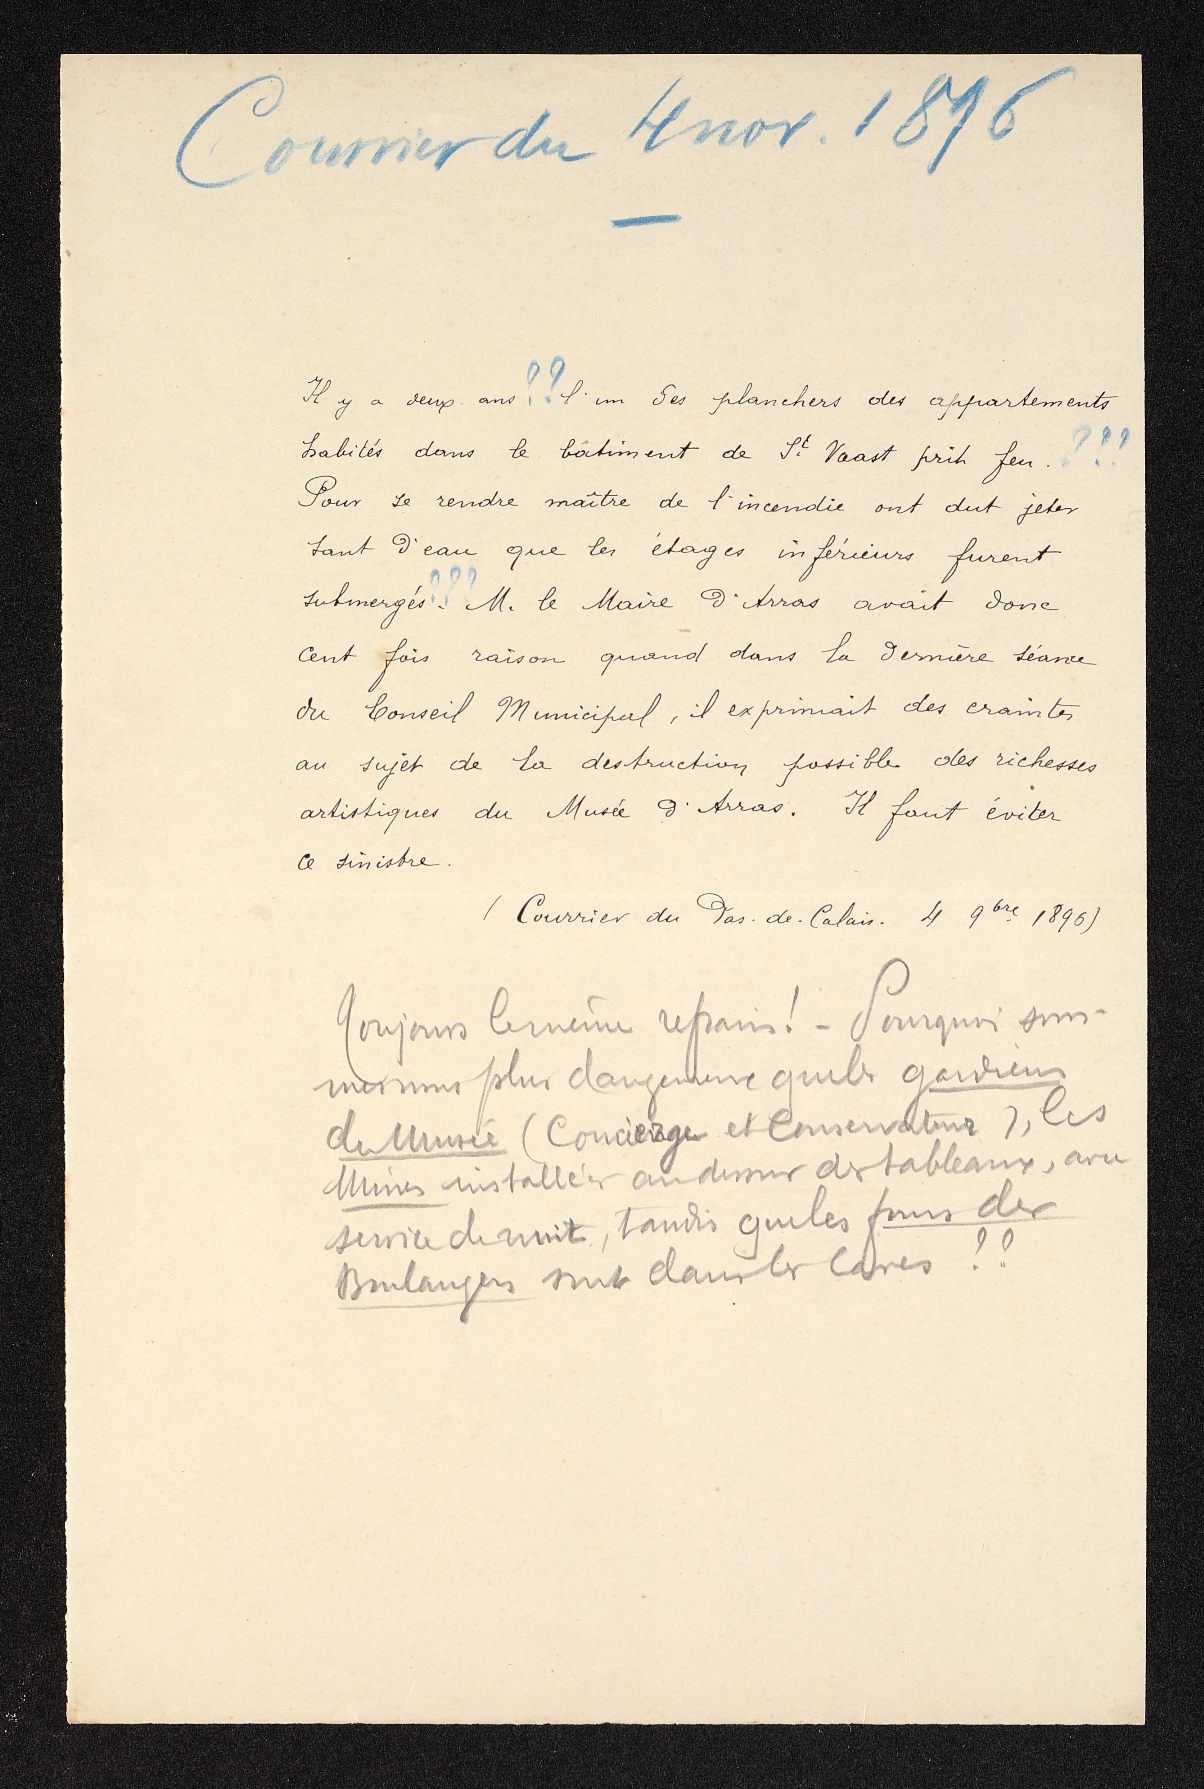 Courrier du 4 nov. 1896
Il y a deux ans ?? l'un des planchers des appartements
habités dans le bâtiment de St Vaast prit feu. ???
Pour se rendre maître de l'incendie ont dut jeter
tant d'eau que les étages inférieurs furent
submergés ???. M. le Maire d'Arras avait donc
cent fois raison quand dans la dernière séance
du Conseil Municipal, il exprimait des craintes
au sujet de la destruction possible des richesses
artistiques du Musée d'Arras. Il faut éviter
ce sinistre.
(Courrier du Pas-de-Calais. 4 9bre 1896)
Toujours le même refrain! - Pourquoi som-
mes nous plus dangereux que les gardiens
du Musée (Concierge et Conservateur), les
Mines installées au dessus des tableaux, avec
service de nuit, tandis que les fours des
Boulangers sont dans les Caves !!